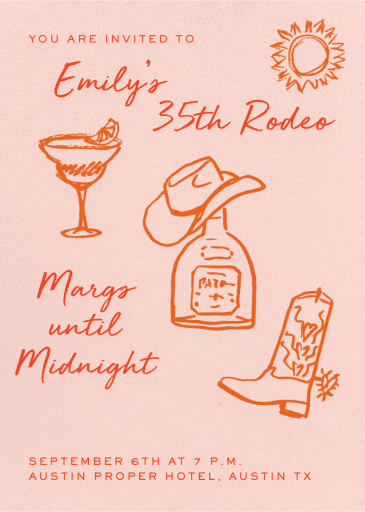 YOU ARE INVITED TO
Emily's
35th Rodeo
Margs
until
Midnight
SEPTEMBER 6TH AT 7 P.M.
AUSTIN PROPER HOTEL, AUSTIN TX